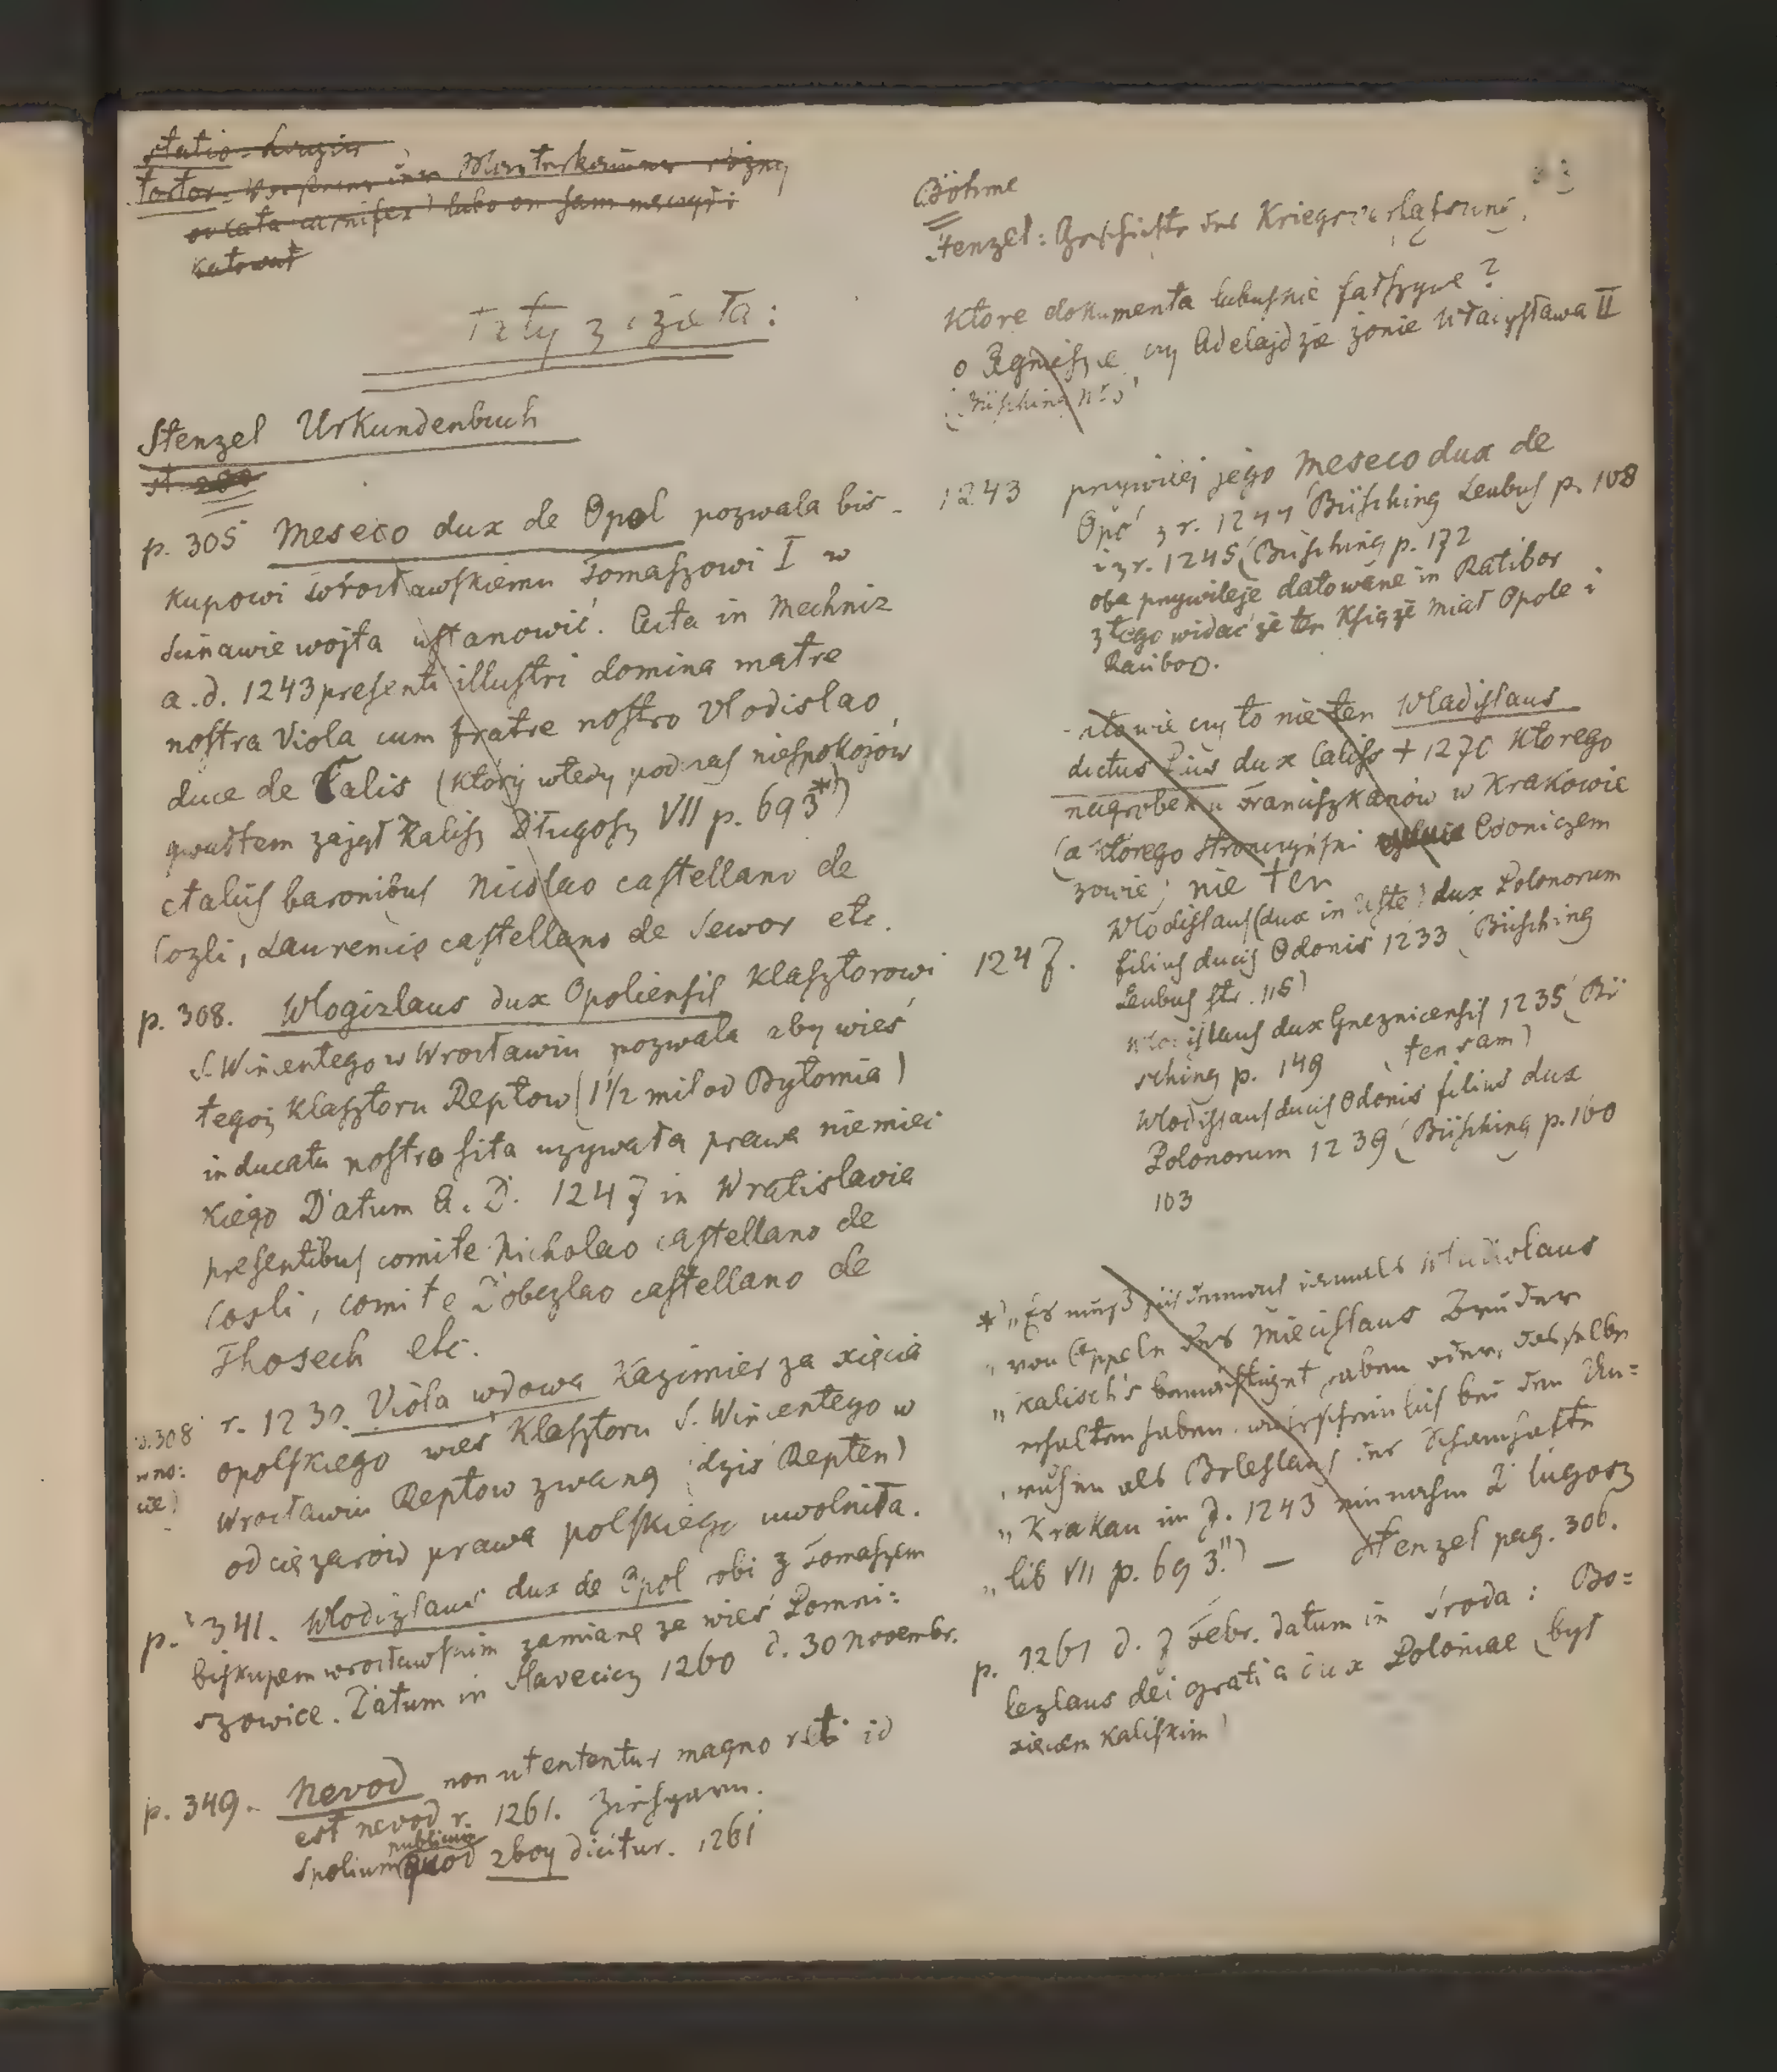 statio
tortor
katował
Stenzel Urkundenbuch
p. 305 Meseco dux de Opol pozwala bis-
kupowi wrocławskiemu Tomaszowi I w
wojta ustanowić. Acta in Mechniz
a.d. 1243 presenti illustri domina matre
nostra Viola cum fratre nostro Vlodislao
duce de Calis (który wtedy podczas niespokojów
gwałtem zajął Kalisz Długosz VII p. 693*)
baronibus Nicolao castellano de
Cozli, Laurencio castellano de Sewor etc.
p. 308. Wlogizlaus dux Opoliensis klasztorowi
S. Wincentego w Wrocławiu pozwala aby wieś
tegoż klasztoru Reptow (1 1/2 mil od Bytomia)
in ducatu nostro sita używała prawa niemiec
kiego Datum A. D. 1247 in Wratislavia
presentibus comite Nicholao castellano de
Cosli, comite castellano de
Thosech etc.
p. 308 r. 1230. Viola wdowa Kazimierza xięcia
opolskiego wieś klasztoru S. Wincentego w
Wrocławiu Reptow zwaną (dziś Repten)
od ciężarów prawa polskiego uwolniła.
p. 341. Wlodizlaus dux de Opol robi z Tomaszem
biskupem wrocławskim zamianę za wieś Lomni:
szowice. Datum in Slavecicz 1260 d. 30 Novembr.
p. 349. Nevod non utententur magno reti id
est nevod r. 1261. Ziehgarn.
Spolium publicum quod zboy dicitur. 1261
Böhme
Stenzel: Geschichte des
Które dokumenta lubuskie fałszywe?
o Agnieszce czy Adelajdzie żonie Władysława II
(Büsching No
1243 przywilej jego Meseco dux de
Opol z r. 1244 Büsching Leubus p. 108
i z r. 1245 (Büsching p. 172
oba przywileje datowane in Ratibor
z tego widać że ten Książę miał Opole i
Racibor.
czy to nie ten Wladislaus
dictus Pius dux Caliss + 1270 którego
nagrobek u Franciszkanów w Krakowie
(a którego Stronczyński Odoniczem
zowie) nie ten
Wlodislaus (dux in Uste) dux Polonorum
1247. filius ducis Odonis 1233 (Büsching
Leubus str. 116)
Wlodislaus dux Gneznicensis 1235 (Bü
sching p. 149 (ten sam)
Wlodislaus ducis Odonis filius dux
Polonorum 1239 (Büsching p. 160
163
*) „Es muß sich damals Wladislaus
„von Oppeln des Miecislaus Bruder
„Kalisch's bemächtigt haben oder dasselbe
erhalten haben, wahrscheinlich bei den Un=
„ruhen als Boleslaus der Schamhafte
„Krakau im J. 1243 einnahm Dlugosz
„lib VII p. 693.") — Stenzel pag. 306.
p. 1261 d. 7 Febr. datum in Środa: Bo=
lezlaus dei gratia dux Poloniae (był
xięciem Kaliskim)